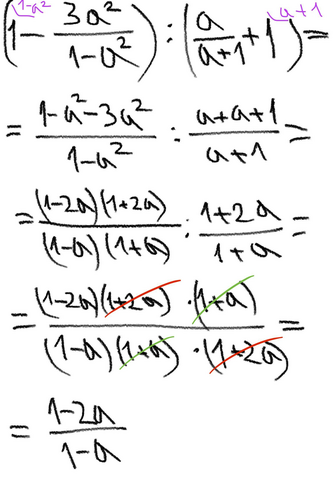 (1 - 3a²/(1-a²)) : (a/(a+1) + 1) = 1-a² a+1
= (1-a²-3a²)/(1-a²) : (a+a+1)/(a+1) =
= ((1-2a)(1+2a))/((1-a)(1+a)) : (1+2a)/(1+a) =
= ((1-2a)(1+2a)·(1+a))/((1-a)(1+a)·(1+2a)) =
= (1-2a)/(1-a)